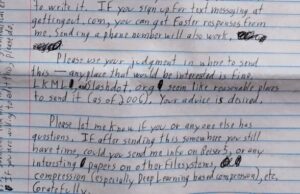 to write it. If you sign up for text messaging at
gettingout.com, you can get faster responses from
me. Sending a phone number will also work,
Please use your judgment in where to send
this — any place that would be interested is fine.
LKML, slashdot.org seem like reasonable places
to send it (as of 2006). Your advice is desired.
Please let me know if you or any one else has
questions. If after sending this somewhere you still
have time, could you send me info on Reiser5, or any
interesting papers on other filesystems,
compression (especially Deep Learning based compression), etc.
Gratefully,
If you're writing to add this, please do